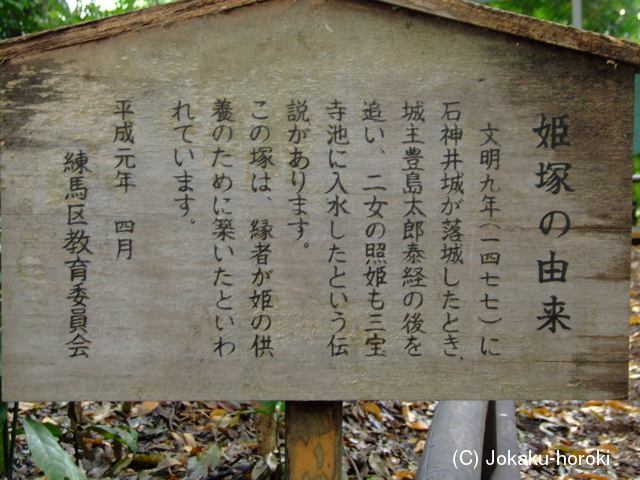 姫塚の由来
文明九年(一四七七)に
石神井城が落城したとき、
城主豊島太郎泰経の後を
追い、二女の照姫も三宝
寺池に入水したという伝
説があります。
この塚は、縁者が姫の供
養のために築いたといわ
れています。
平成元年 四月
練馬区教育委員会
(C) Jokaku-horoki